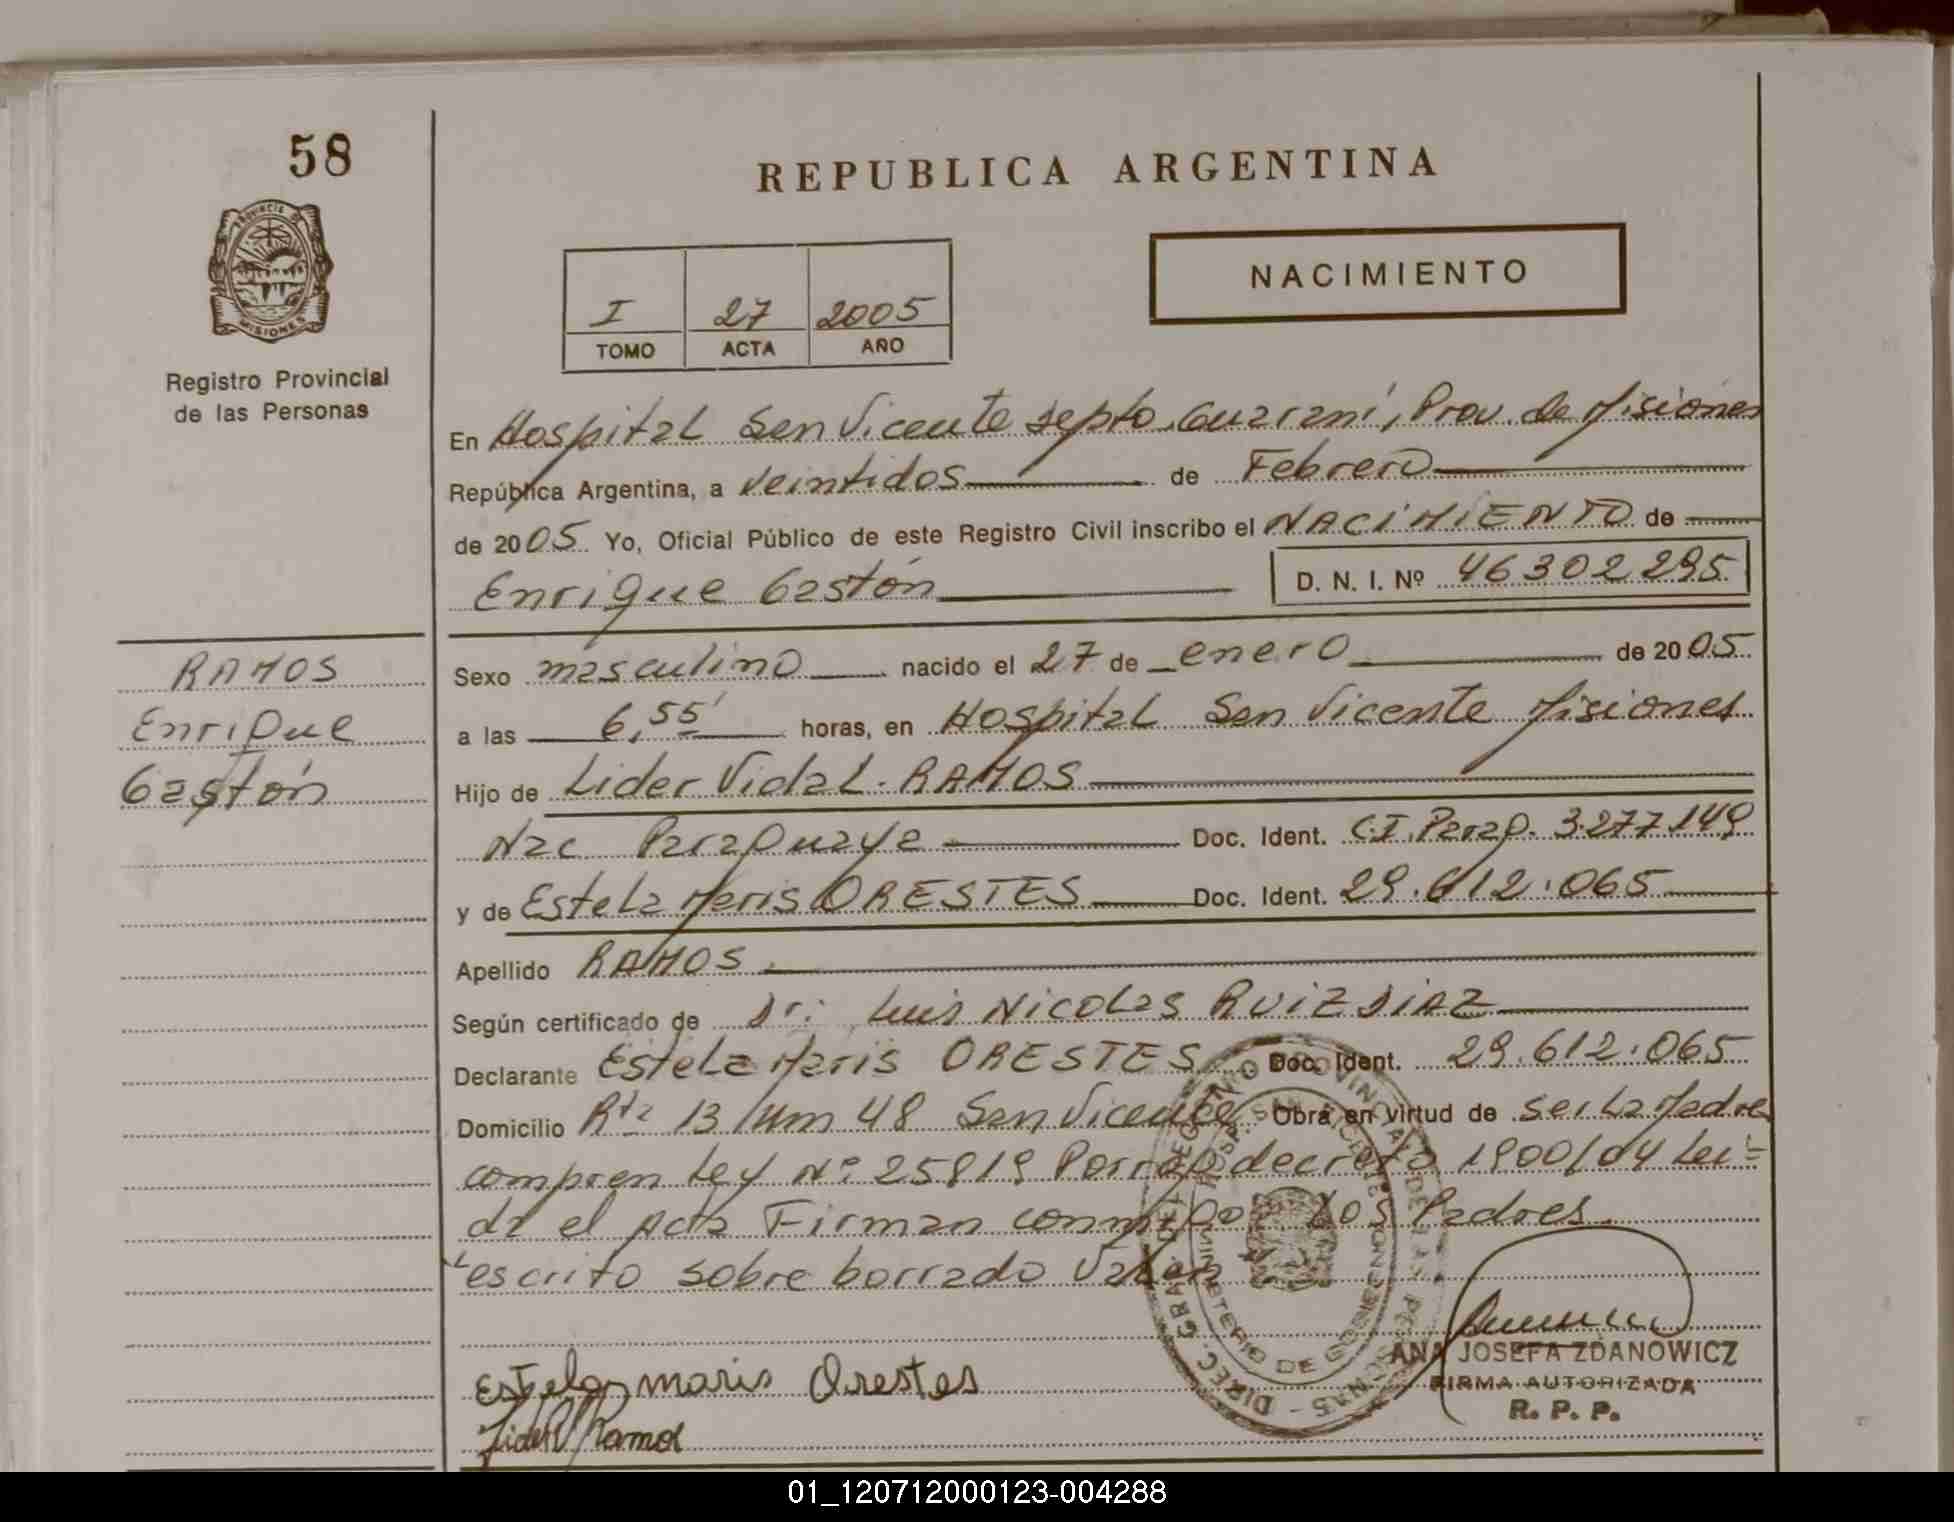 58
REPUBLICA ARGENTINA
PROVINCIA DE
MISIONES
Registro Provincial
de las Personas
NACIMIENTO
I 27 2005
TOMO ACTA AÑO
En Hospital San Vicente Depto. Guaraní, Prov. de Misiones
República Argentina, a veintidos de Febrero
de 2005 Yo, Oficial Público de este Registro Civil inscribo el NACIMIENTO de
Enrique Gastón D. N. I. Nº 46302295
RAMOS
Enrique
Gastón
Sexo masculino nacido el 27 de enero de 2005
a las 6,55' horas, en Hospital San Vicente Misiones
Hijo de Lider Vidal. RAMOS
Nac Paraguaya Doc. Ident. C.I. Parag. 3.277149
y de Estela Maris ORESTES Doc. Ident. 29.612.065
Apellido RAMOS
Según certificado de Dr: Luis Nicolas RUIZ DIAZ
Declarante Estela Maris ORESTES Doc. Ident. 29.612.065
Domicilio Rta 13 Km 48 San Vicente Obra en virtud de ser la Madre
compren Ley Nº 25819 Porrog decreto 1900/04 Lei-
da el acta Firman conmigo los Padres.
escrito sobre borrado Vale
DIREC. GRAL. DEL REGISTRO PROVINCIAL DE LAS PERSONAS
HOSP. SAN VICENTE
MINISTERIO DE GOBIERNO
Estela maris Orestes
Lider V Ramos
ANA JOSEFA ZDANOWICZ
FIRMA AUTORIZADA
R. P. P.
01_120712000123-004288